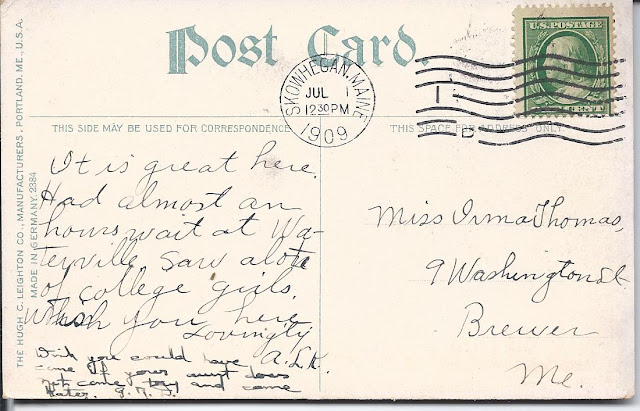 Post Card.
U.S. POSTAGE
SKOWHEGAN, MAINE
JUL 1
12 30 PM
1909
1
B
THIS SIDE MAY BE USED FOR CORRESPONDENCE
THIS SPACE FOR ADDRESS ONLY.
THE HUGH C. LEIGHTON CO., MANUFACTURERS, PORTLAND, ME., U.S.A.
MADE IN GERMANY 2384
It is great here.
Had almost an
hours wait at Wa-
terville, saw alot
of college girls.
Wish you here
Lovingly
A.L.K.
Wish you could have
come If your aunt does
not come try and come
later.
Miss Irma Thomas,
9 Washington St.
Brewer
Me.